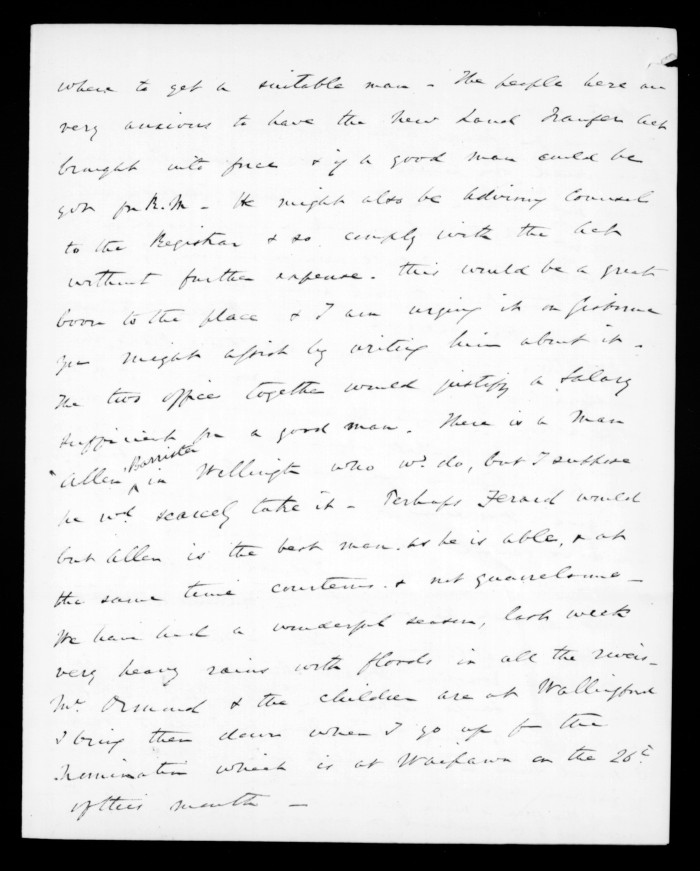 where to get a suitable man - The people here are
very anxious to have the new Land Transfer Act
brought into force & if a good man could be
got for R.M - He might also be advising Counsel
to the Registrar & so comply with the Act
without further expense. this would be a great
boon to the place & I am urging it on Gisborne
you might assist by writing him about it -
The two office together would justify a Salary
sufficient for a good man. There is a Man
"Allen Barrister in Wellingtn who wd. do, but I suppose
he wd. scarcely take it - Perhaps would
but Allen is the best man. as he is able, & at
the same time courteous. & not quarrelsome -
We have had a wonderful season, last week
very heavy rains with floods in all the rivers -
Mrs. Ormond & the children are at Wallingford
I bring them down when I go up for the
Nomination which is at Waipawa on the 26t.
of this month -